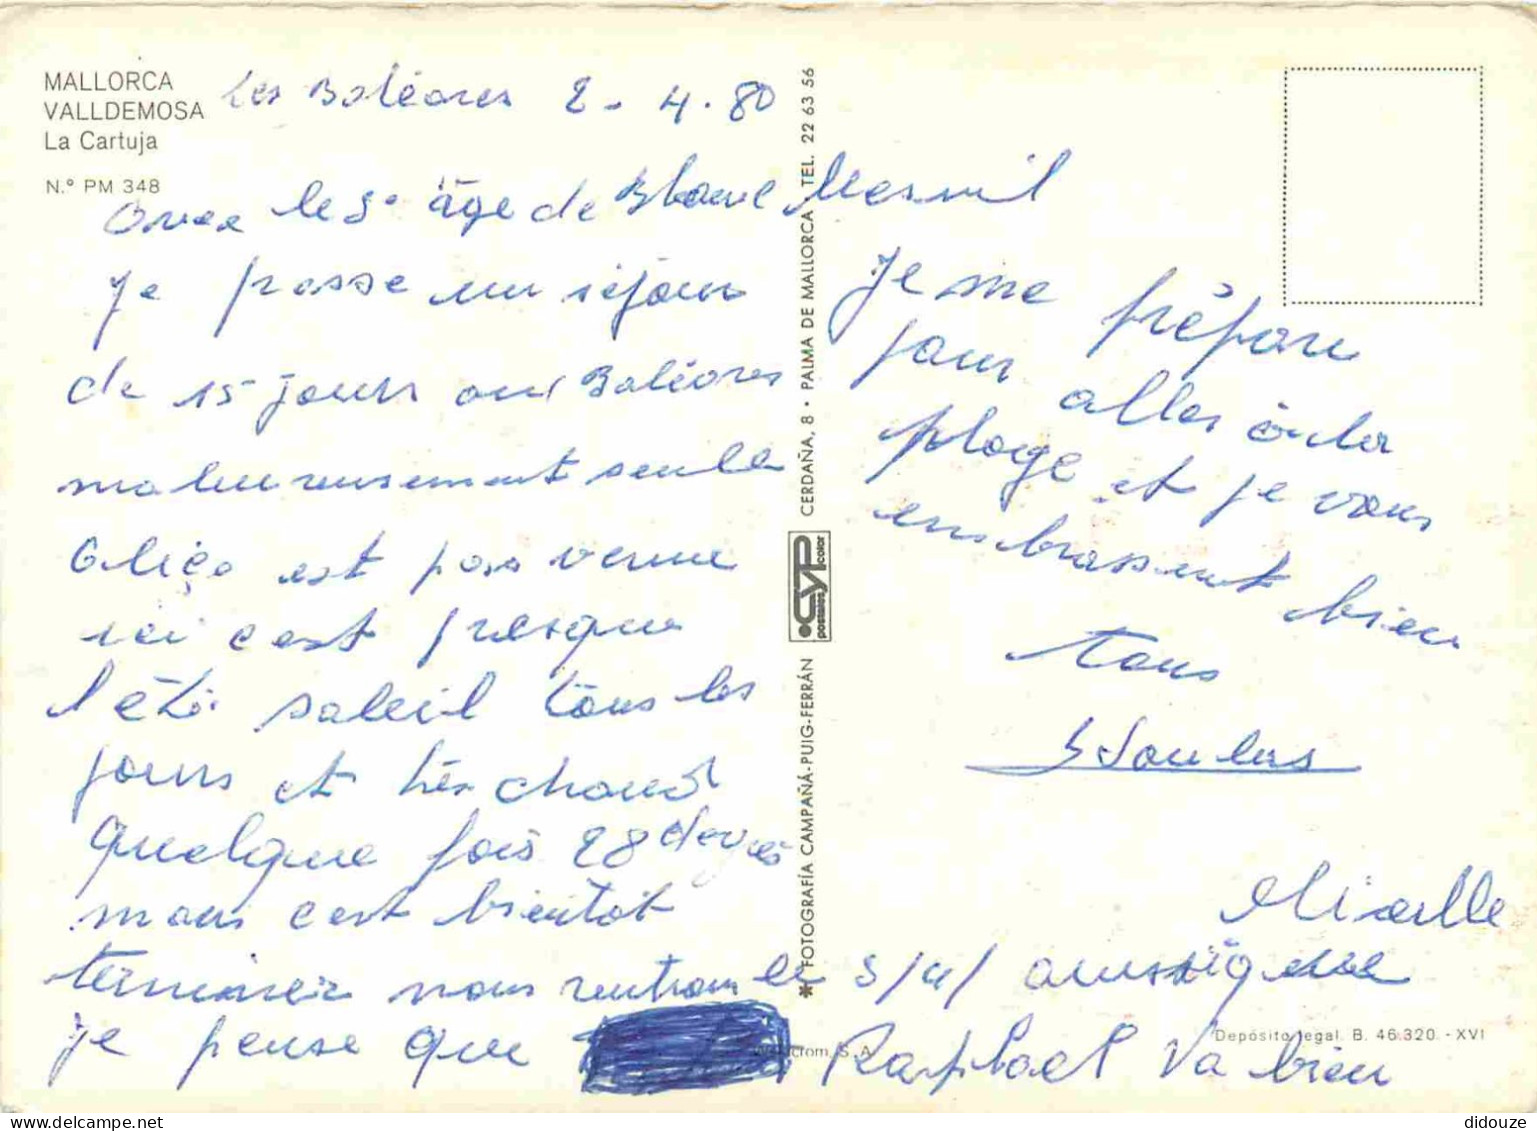 MALLORCA
VALLDEMOSA
La Cartuja
N.º PM 348
Les Baléares 2 - 4 . 80
Avec le 3e âge de Blanc Mesnil
je passe un séjour
de 15 jours aux Baléares
maleureusement seul la
est pas venue
ici c'est presque
l'été soleil tous les
jours et très chaud
quelque fois 28 degrés
mais c'est bientôt
terminer nous rentrons le 5/4/
je pense que Raphael va bien
Je me prépare
pour aller à la
plage et je vous
embrassent bien
tous
CERDAÑA, 8 • PALMA DE MALLORCA TEL. 22 63 56
CYP
postales color
FOTOGRAFÍA CAMPAÑÁ-PUIG-FERRÁN
Depósito legal B. 46.320 - XVI
didouze